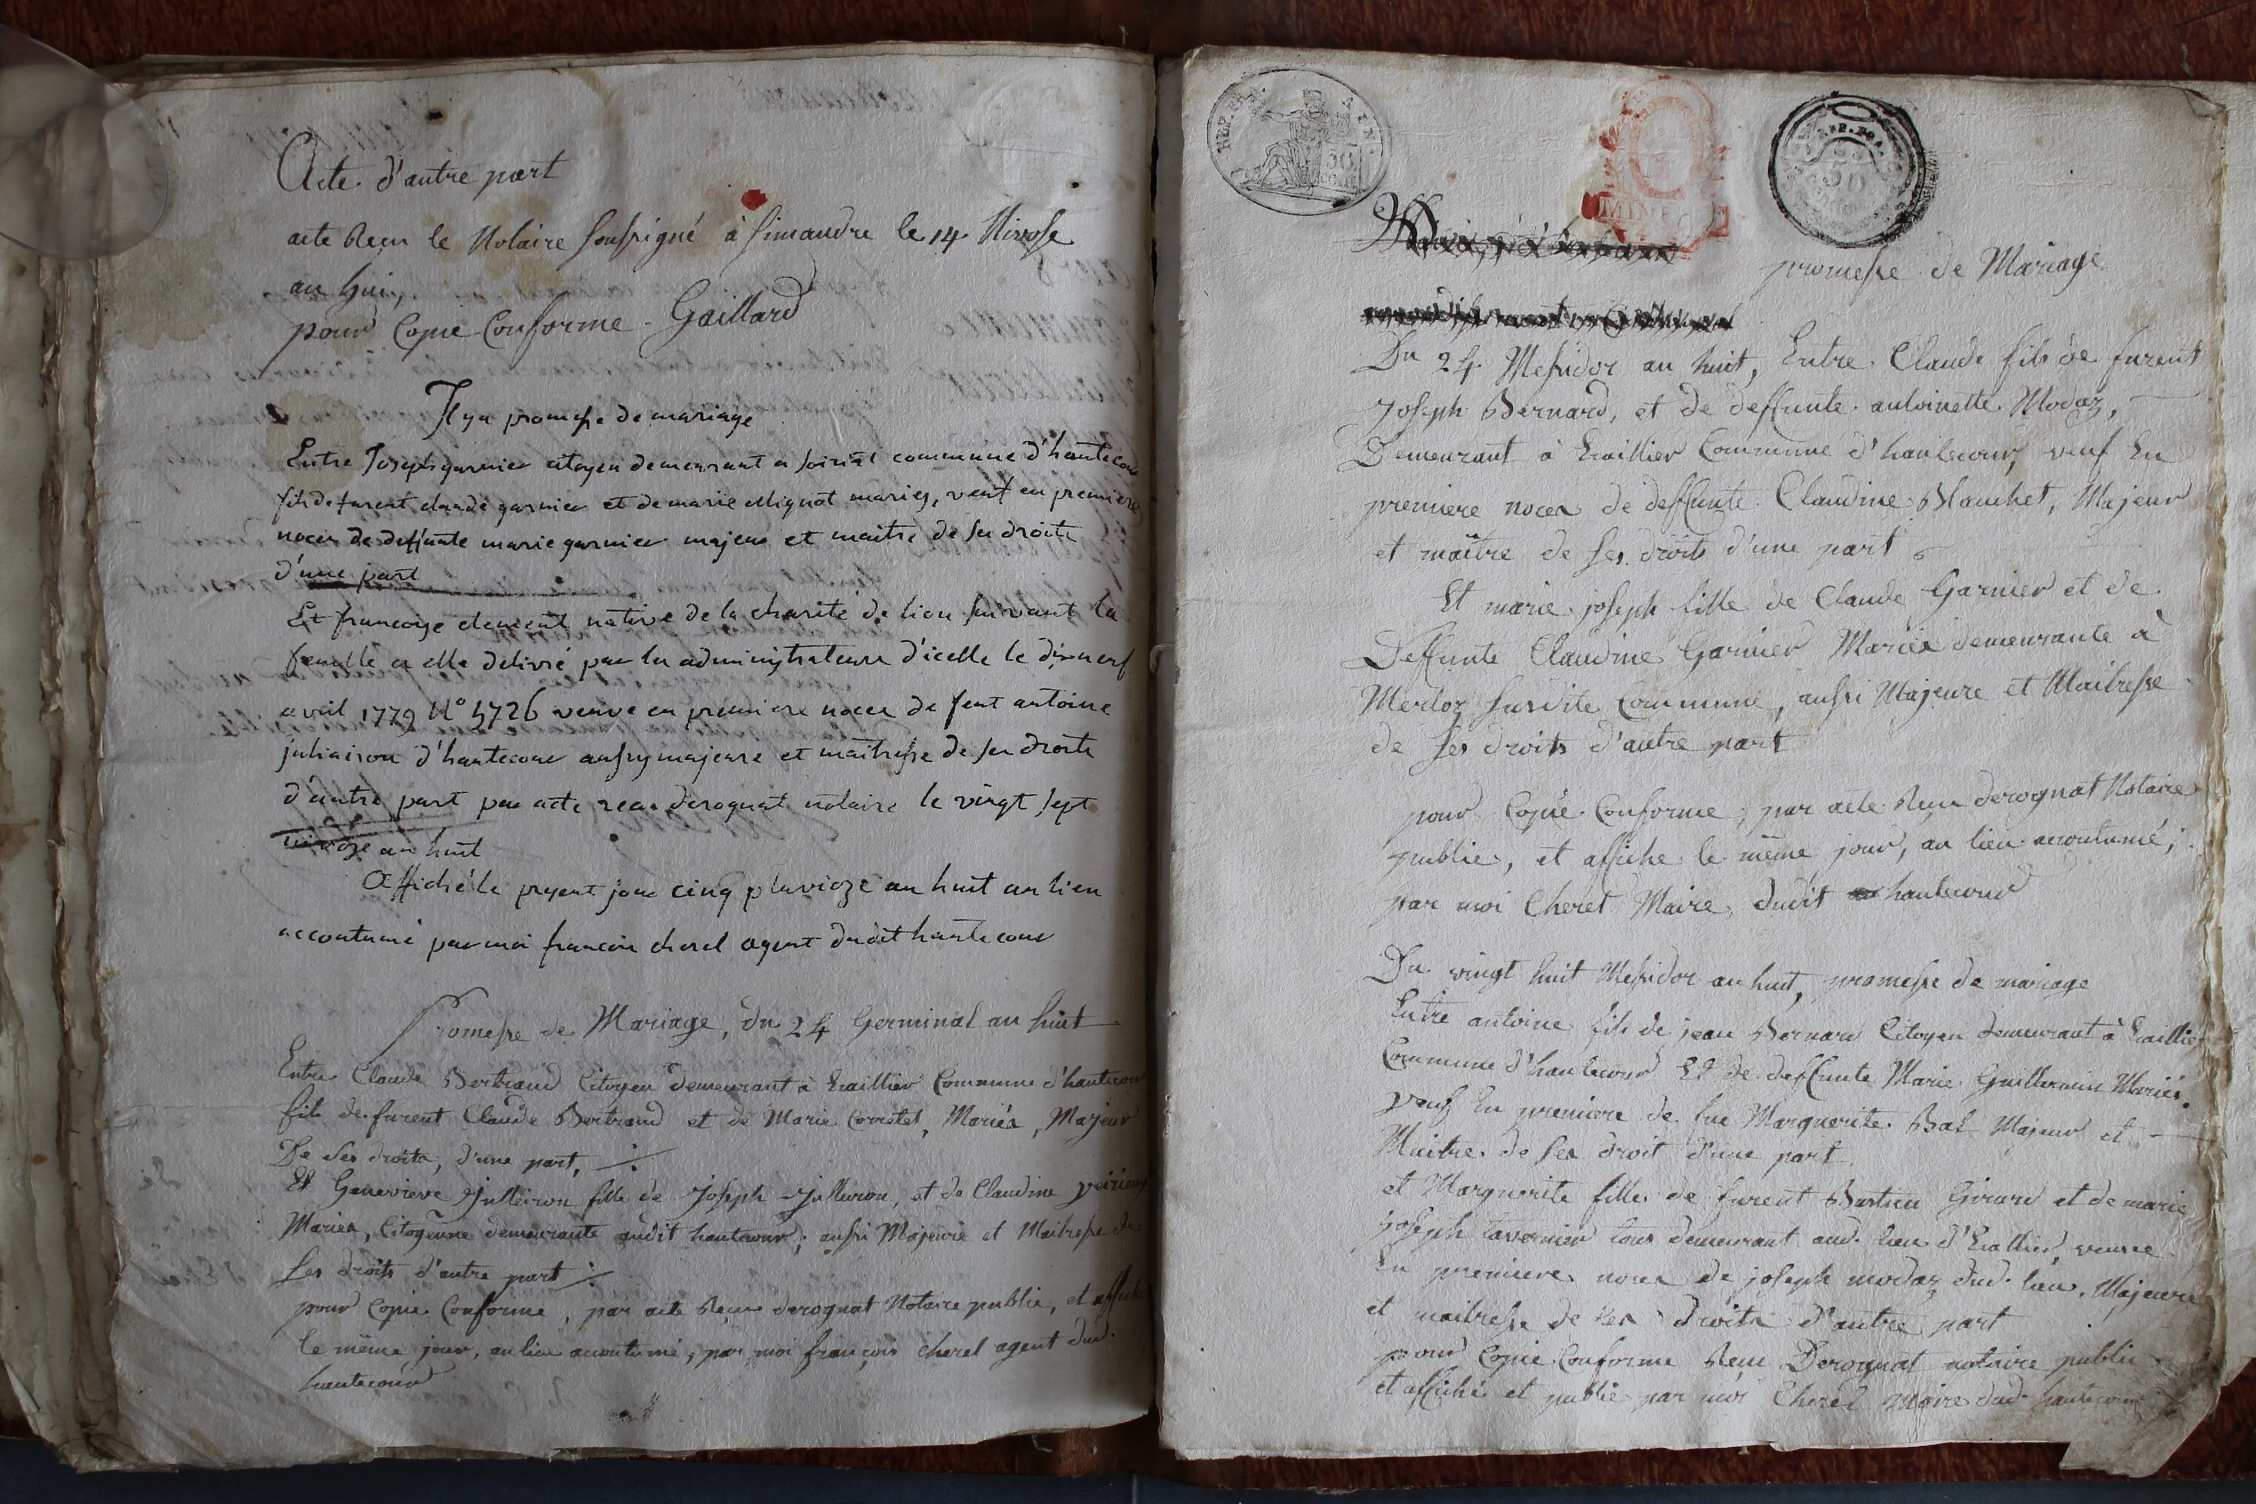 Acte d'autre part
acte Recu le Notaire soussigné à simandre le 14 Nivose
an huit,
pour Copie Conforme - Gaillard
Il y a promesse de mariage
Entre Joseph garnier citoyen demeurant a commune d'hautecour
fils de furent claude garnier et de marie Mignot mariés, veuf en premiere
noces de deffunte marie garnier majeur et maitre de ses droits
d'une part
Et francoise clement native de la charité de lion suivant la
feuille a elle delivré par les administrateurs d'icelle le dixneuf
avril 1779 N° 5726 veuve en premiere noces de feut antoine
juliaison d'hautecour aussy majeure et maitresse de ses droits
d'autre part par acte recu derognat notaire le vingt sept
nivoze an huit
Affiché le present jour cinq pluvioze an huit au lieu
accoutumé par moi francois cherel agent dudit hautecour
Promesse de Mariage, du 24 Germinal an huit
Entre Claude Bertrand Citoyen demeurant à Eraillier Commune d'hautecour
fils de furent Claude Bertrand et de Marie Corretel, Mariés, Majeur
De ses droits, d'une part,
Et Genevieve Julleiron fille de Joseph Julleiron, et de Claudine
Mariés, Citoyenne demeurante audit hautecour; aussi Majeure et Maitresse de
ses droits d'autre part
pour Copie Conforme, par acte Recu derognat Notaire public, et affiché
le même jour, au lieu accoutumé, par moi françois cherel agent dud.
hautecour
REP. FRA.
50
promesse de Mariage
Du 24 Messidor an huit, Entre Claude fils de furent
Joseph Bernard, et de deffunte antoinette Modaz,
Demeurant à Eraillier Commune d'hautecour, veuf En
premiere noces de deffunte Claudine Blanchet, Majeur
et maître de ses droits d'une part
Et marie joseph fille de Claude Garnier et de
Deffunte Claudine Garnier Mariés demeurante à
Merloz susdite Commune, aussi Majeure et Maitresse
de ses droits d'autre part
pour Copie Conforme, par acte Recu derognat Notaire
public, et affiché le même jour, au lieu accoutumé;
par moi Cherel Maire, dudit hautecour
Du vingt huit Messidor an huit, promesse de mariage
Entre antoine fils de jean Bernard Citoyen demeurant à Eraillier
Commune d'hautecour Et de deffunte Marie Guillermin Mariés.
veuf En premiere de fue Marguerite Bal Majeur et
Maitre de ses droit d'une part.
et Marguerite fille de furent Bastien Girard et de marie
joseph tavernier tous demeurant aud. lieu d'Erallier, veuve
En premiere noces de joseph modaz dud. lieu, Majeure
et maitresse de ses droits d'autre part
pour Copie Conforme Recu Derognat notaire public
et affiché et publié par moi Cherel Maire dud. hautecour